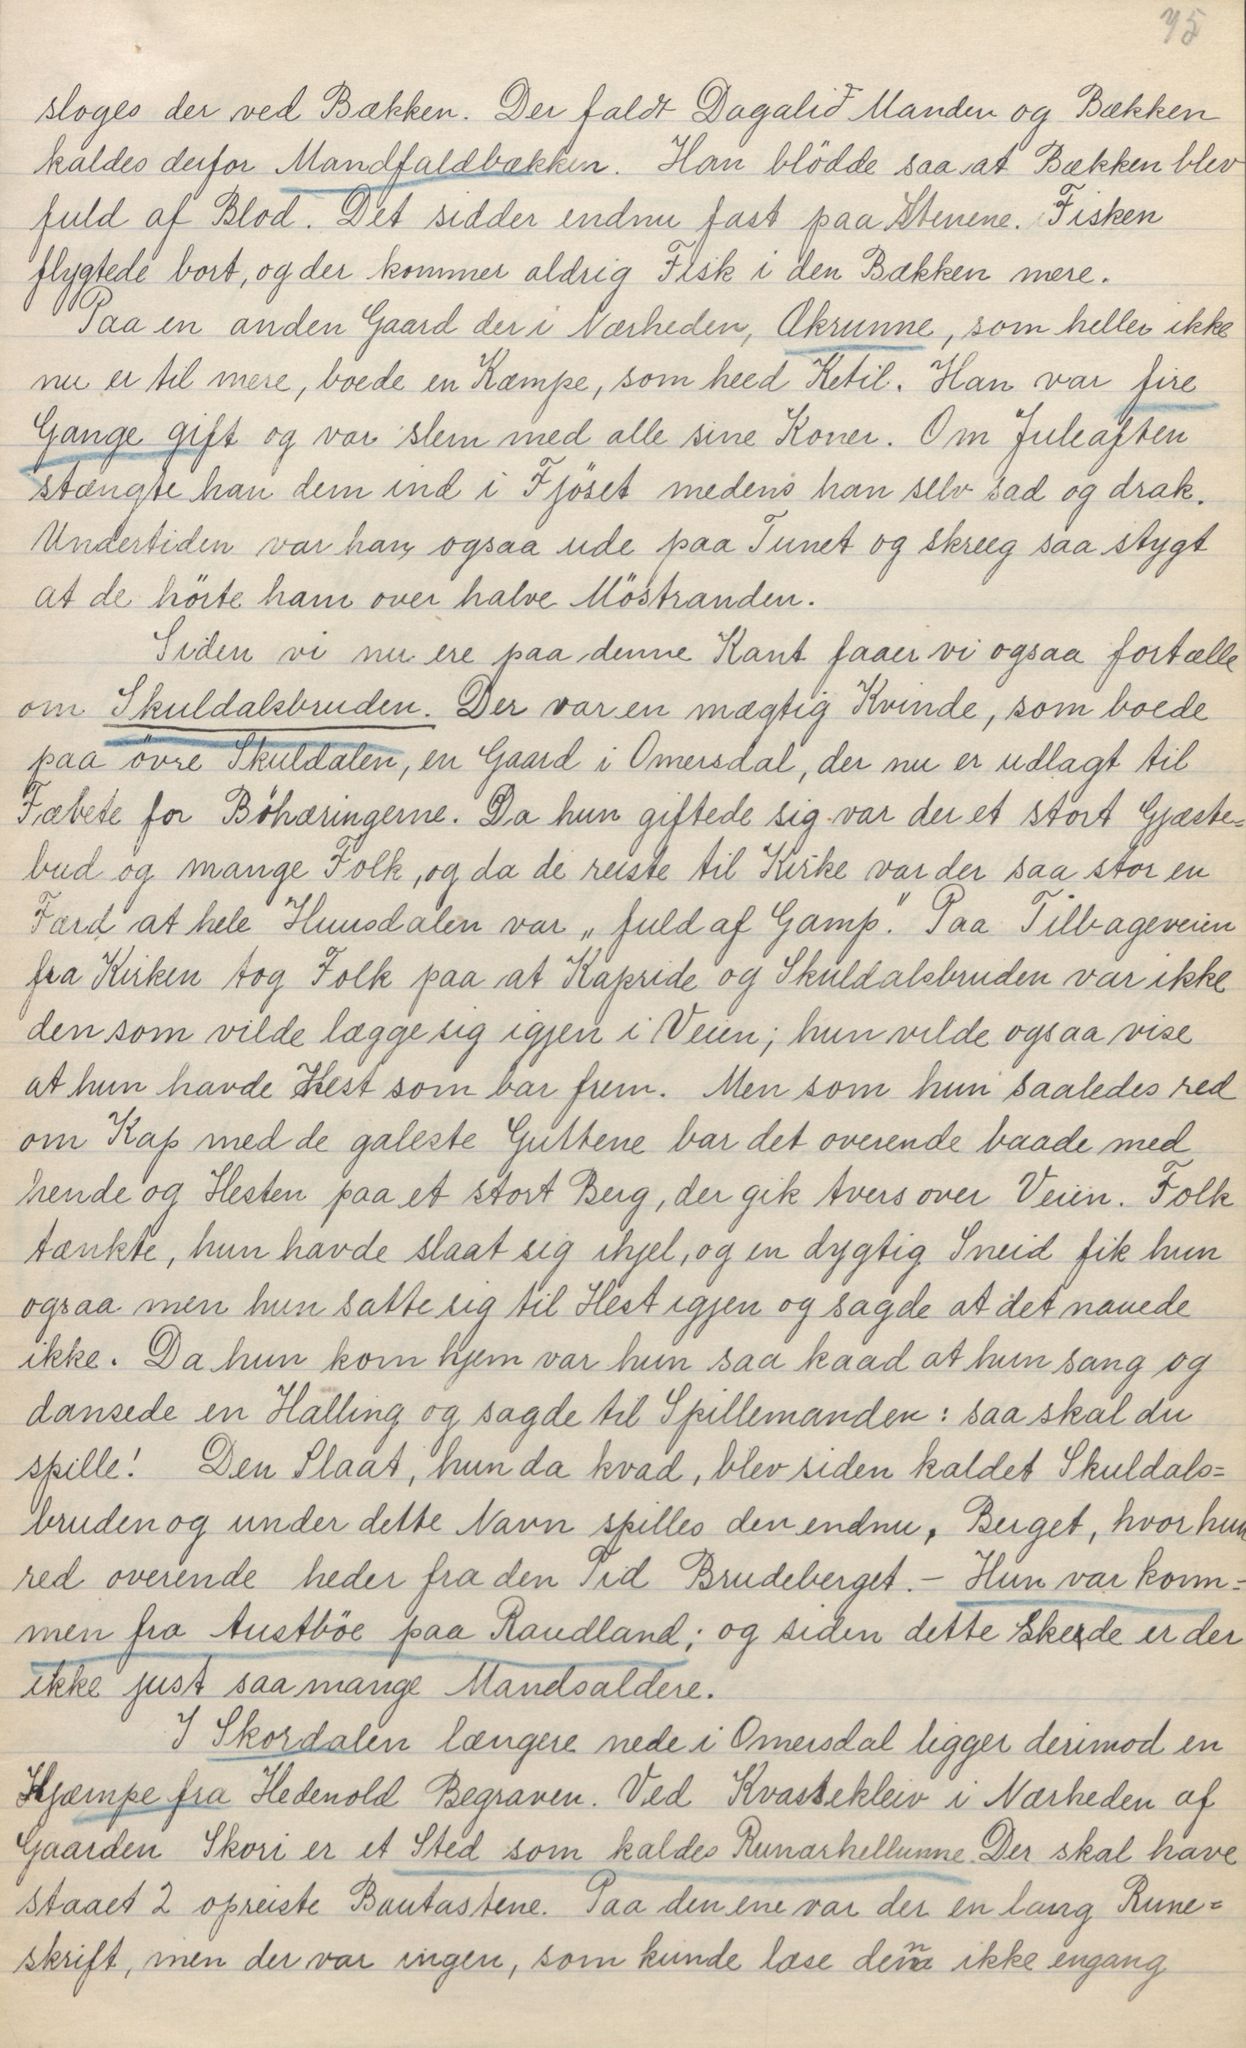 75
sloges der ved Bækken. Der faldt Dagalid Manden og Bækken
kaldes derfor Mandfaldbækken. Han blödde saa at Bækken blev
fuld af Blod. Det sidder endnu fast paa Stenene. Fisken
flygtede bort, og der kommer aldrig Fisk i den Bækken mere.
Paa en anden Gaard der i Nærheden, Akrunne, som heller ikke
nu er til mere, boede en Kæmpe, som heed Ketil. Han var fire
Gange gift og var slem med alle sine Koner. Om Juleaften
stængte han dem ind i Fjöset medens han selv sad og drak.
Undertiden var han ogsaa ude paa Tunet og skreeg saa stygt
at de hörte ham over halve Möstranden.
Siden vi nu ere paa denne Kant faaer vi ogsaa fortælle
om Skuldalsbruden. Der var en mægtig Kvinde, som boede
paa övre Skuldalen, en Gaard i Omersdal, der nu er udlagt til
Fæbete for Böhæringerne. Da hun giftede sig var der et stort Gjæste=
bud og mange Folk, og da de reiste til Kirke var der saa stor en
Færd at hele Huusdalen var „fuld af Gamp." Paa Tilbageveien
fra Kirken tog Folk paa at Kapride og Skuldalsbruden var ikke
den som vilde lægge sig igjen i Veien; hun vilde ogsaa vise
at hun havde Hest som bar frem. Men som hun saaledes red
om Kap med de galeste Guttene bar det overende baade med
hende og Hesten paa et stort Berg, der gik tvers over Veien. Folk
tænkte, hun havde slaat sig ihjel, og en dygtig Sneid fik hun
ogsaa men hun satte sig til Hest igjen og sagde at det navede
ikke. Da hun kom hjem var hun saa kaad at hun sang og
dansede en Halling og sagde til Spillemanden: saa skal du
spille! Den Slaat, hun da kvad, blev siden kaldet Skuldals=
bruden og under dette Navn spilles den endnu. Berget, hvor hun
red overende heder fra den Tid Brudeberget. - Hun var kom=
men fra Austböe paa Raudland; og siden dette Skede er der
ikke just saa mange Mandsaldere.
I Skordalen længere nede i Omersdal ligger derimod en
Kjæmpe fra Hedenold Begraven. Ved Kvastekleiv i Nærheden af
Gaarden Skori er et Sted som kaldes Runarhellunne. Der skal have
staaet 2 opreiste Bautastene. Paa den ene var der en lang Rune=
skrift, men der var ingen, som kunde læse denn ikke engang